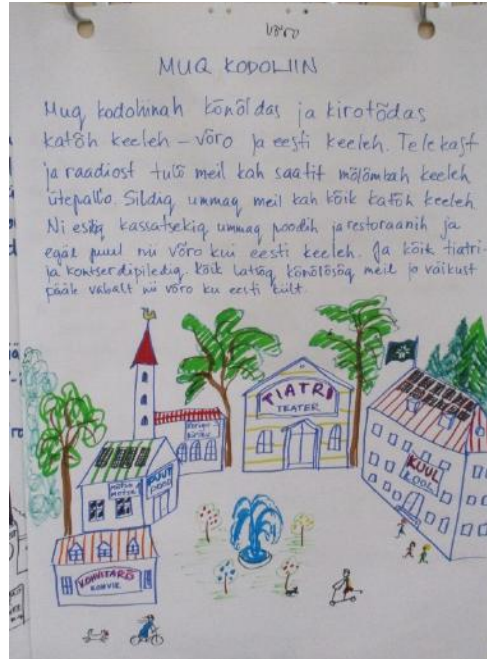 võro
MUQ KODOLIIN
Muq kodoliinah kõnõldas ja kirotõdas
katõh keeleh – võro ja eesti keeleh. Telekast
ja raadiost tulõ meil kah saatit mõlõmbah keeleh
ütepallo. Sildiq ummaq meil kah kõik katõh keeleh
Ni esiq kassatsekiq ummaq poodih ja restoraanih ja
egäl puul nii võro kui eesti keeleh. Ja kõik tiatri-
ja kontserdipilediq. Kõik latsõq kõnõlõsõq meil jo väikust
pääle vabalt nii võro ku eesti kiilt.
TIATRI
TEATER
KUUL
KOOL
PUUT
POOD
KOHVITARÕ
KOHVIK